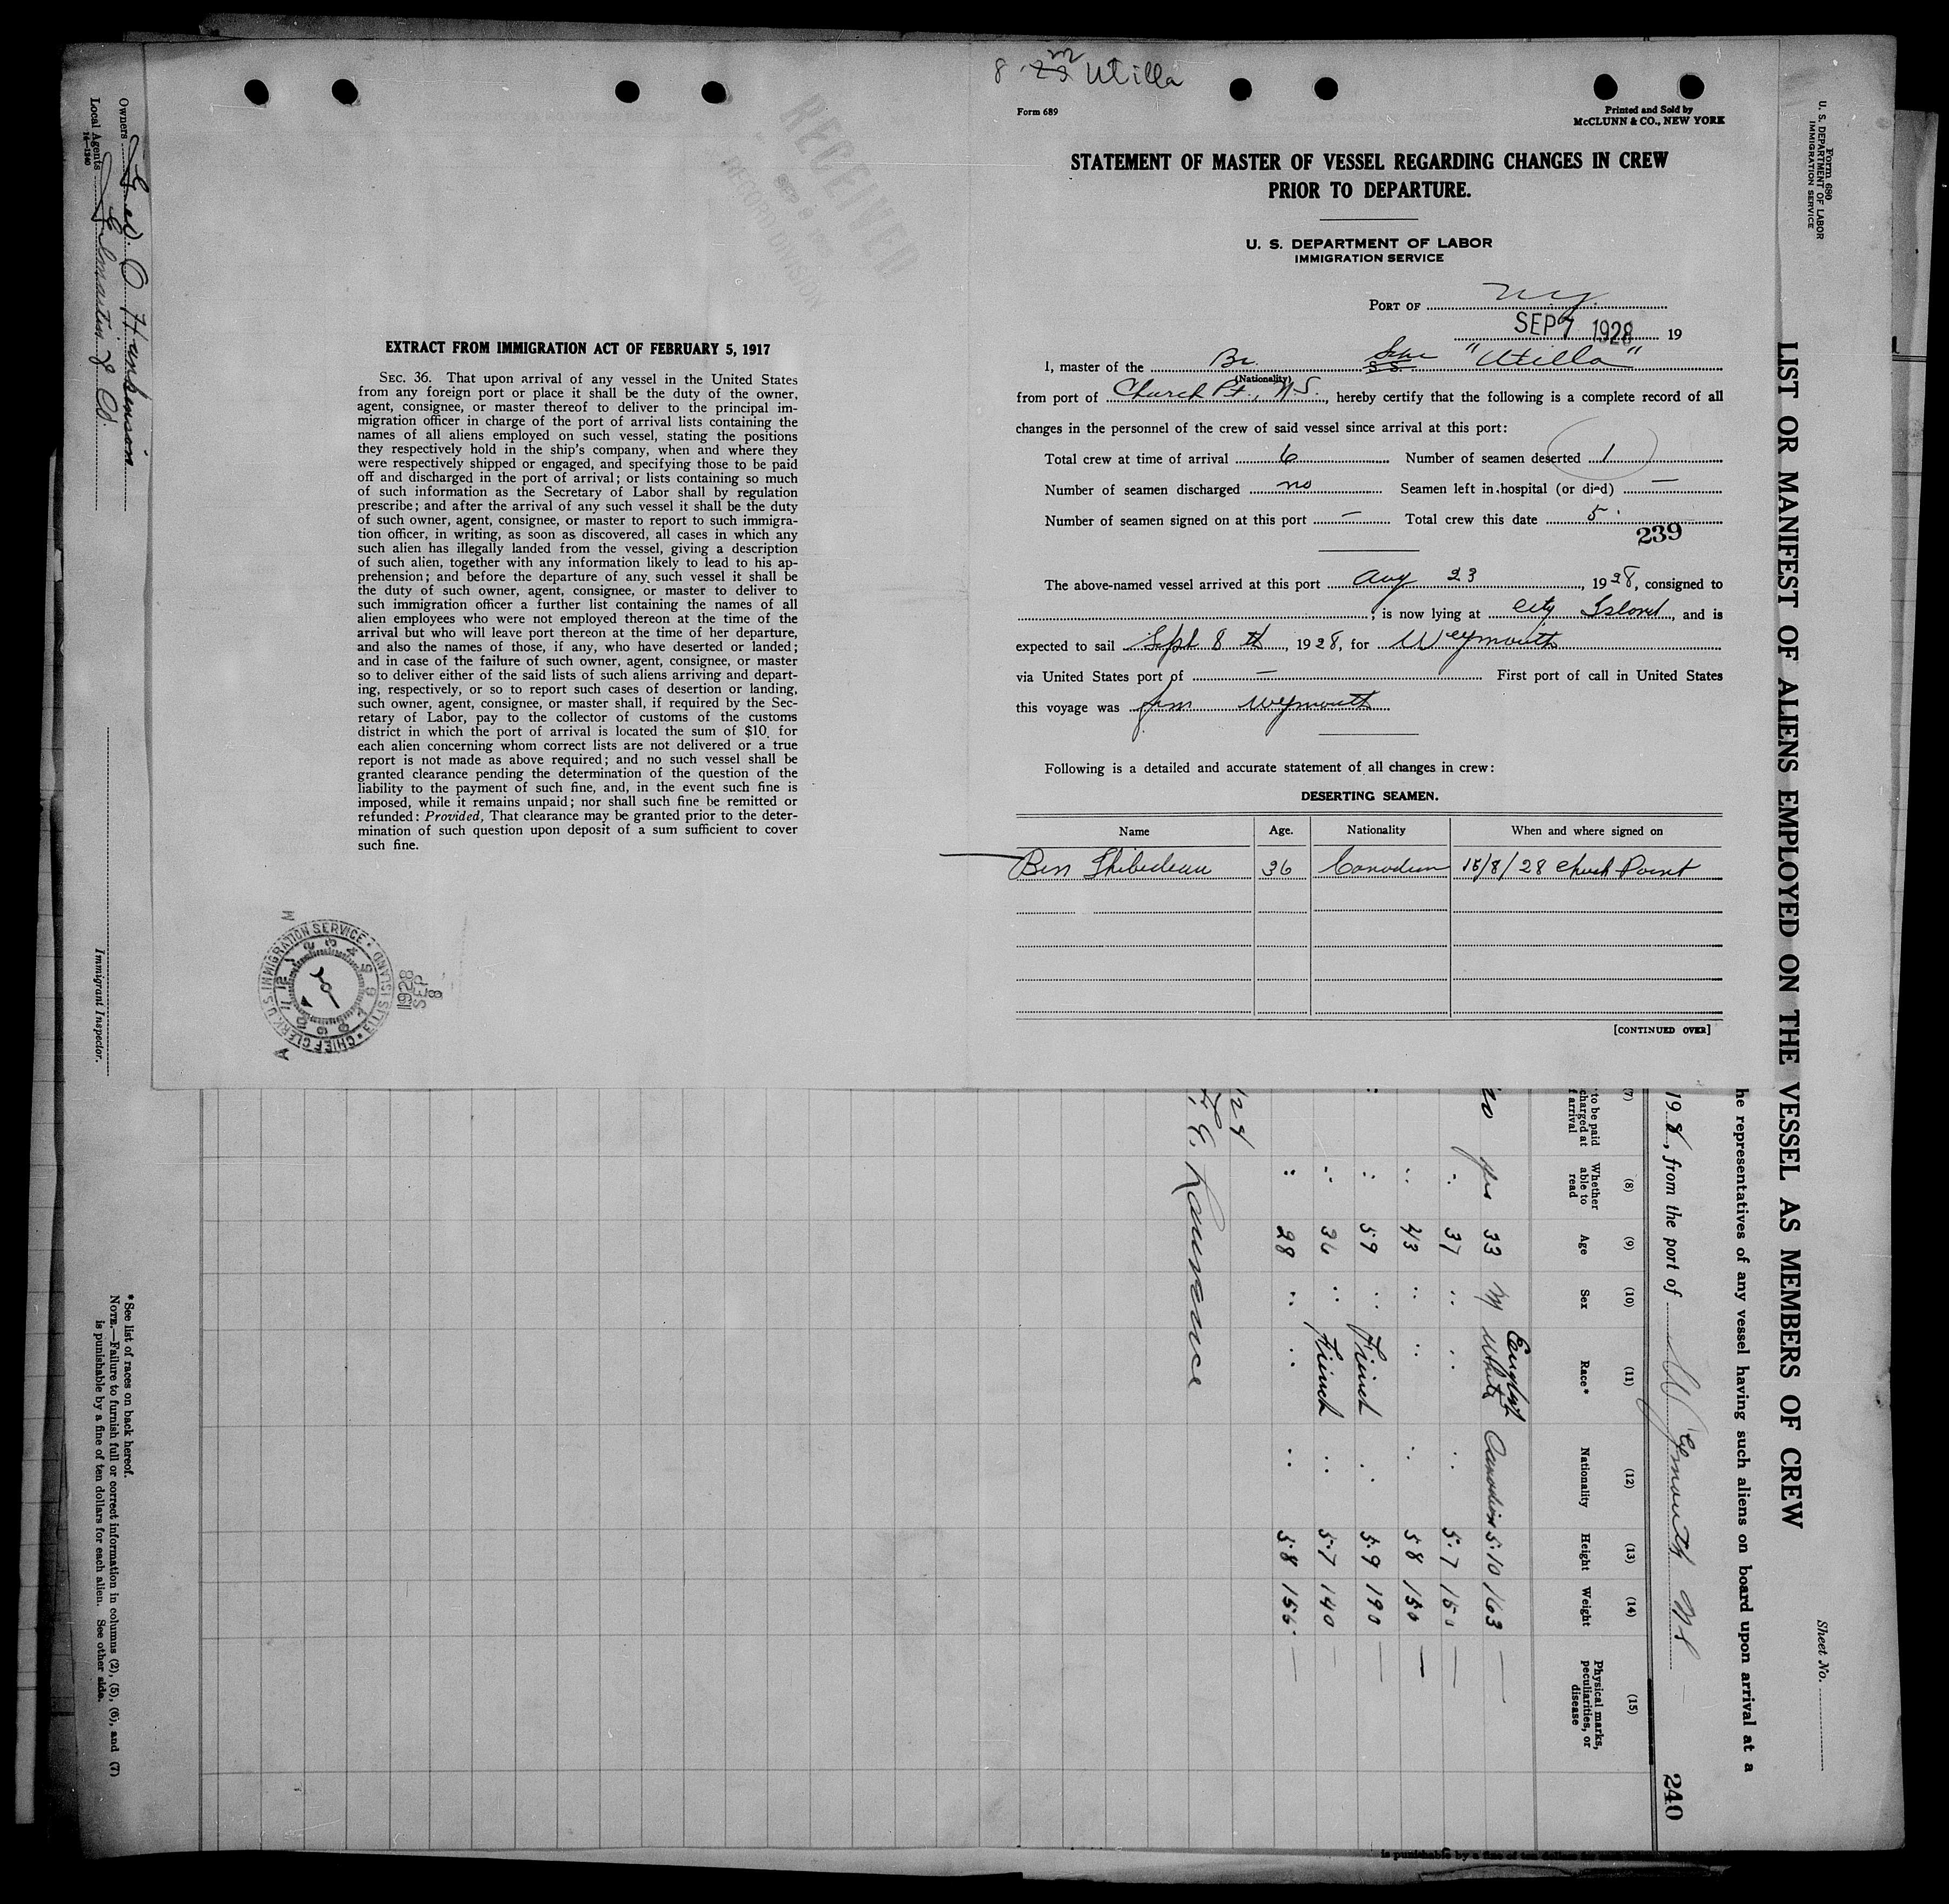 8 Utilla
Form 689
Printed and Sold by
McCLUNN & CO., NEW YORK
STATEMENT OF MASTER OF VESSEL REGARDING CHANGES IN CREW
PRIOR TO DEPARTURE.
U. S. DEPARTMENT OF LABOR
IMMIGRATION SERVICE
PORT OF N.Y.
SEP 7 1928 19
I, master of the Br. Schr S S "Utilla"
(Nationality)
from port of Church Pt., N.S., hereby certify that the following is a complete record of all
changes in the personnel of the crew of said vessel since arrival at this port:
Total crew at time of arrival 6 Number of seamen deserted 1
Number of seamen discharged no Seamen left in hospital (or died) —
Number of seamen signed on at this port — Total crew this date 5
239
The above-named vessel arrived at this port Aug 23, 1928, consigned to
; is now lying at City Island, and is
expected to sail Sept 8 th, 1928, for Weymouth
via United States port of — First port of call in United States
this voyage was from Weymouth
Following is a detailed and accurate statement of all changes in crew:
DESERTING SEAMEN.
Name Age. Nationality When and where signed on
Ben Thibedeau 36 Canadian 15/8/28 Church Point
[CONTINUED OVER]
RECEIVED
SEP 8
RECORD DIVISION
EXTRACT FROM IMMIGRATION ACT OF FEBRUARY 5, 1917
SEC. 36. That upon arrival of any vessel in the United States
from any foreign port or place it shall be the duty of the owner,
agent, consignee, or master thereof to deliver to the principal im-
migration officer in charge of the port of arrival lists containing the
names of all aliens employed on such vessel, stating the positions
they respectively hold in the ship's company, when and where they
were respectively shipped or engaged, and specifying those to be paid
off and discharged in the port of arrival; or lists containing so much
of such information as the Secretary of Labor shall by regulation
prescribe; and after the arrival of any such vessel it shall be the duty
of such owner, agent, consignee, or master to report to such immigra-
tion officer, in writing, as soon as discovered, all cases in which any
such alien has illegally landed from the vessel, giving a description
of such alien, together with any information likely to lead to his ap-
prehension; and before the departure of any such vessel it shall be
the duty of such owner, agent, consignee, or master to deliver to
such immigration officer a further list containing the names of all
alien employees who were not employed thereon at the time of the
arrival but who will leave port thereon at the time of her departure,
and also the names of those, if any, who have deserted or landed;
and in case of the failure of such owner, agent, consignee, or master
so to deliver either of the said lists of such aliens arriving and depart-
ing, respectively, or so to report such cases of desertion or landing,
such owner, agent, consignee, or master shall, if required by the Sec-
retary of Labor, pay to the collector of customs of the customs
district in which the port of arrival is located the sum of $10 for
each alien concerning whom correct lists are not delivered or a true
report is not made as above required; and no such vessel shall be
granted clearance pending the determination of the question of the
liability to the payment of such fine, and, in the event such fine is
imposed, while it remains unpaid; nor shall such fine be remitted or
refunded: Provided, That clearance may be granted prior to the deter-
mination of such question upon deposit of a sum sufficient to cover
such fine.
CHIEF CLERK, U. S. IMMIGRATION SERVICE · ELLIS ISLAND
1928
SEP
8
Form 680
U. S. DEPARTMENT OF LABOR
IMMIGRATION SERVICE
Sheet No.
LIST OR MANIFEST OF ALIENS EMPLOYED ON THE VESSEL AS MEMBERS OF CREW
he representatives of any vessel having such aliens on board upon arrival at a
198, from the port of Weymouth NS
240
(7) (8) (9) (10) (11) (12) (13) (14) (15)
to be paid
charged at
f arrival
Whether
able to
read
Age Sex Race* Nationality Height Weight
Physical marks,
peculiarities, or
disease
English
yes 33 M White Canadian 5-10 163 —
" 37 " " " 5-7 150 —
" 43 " " " 5 8 150 —
" 59 " French " 5-9 190 —
" 36 " French " 5-7 140 —
" 28 " " " 5-8 156 —
Owners
Local Agents
14—1240
Immigrant Inspector.
* See list of races on back hereof.
NOTE.—Failure to furnish full or correct information in columns (2), (5), (6), and (7)
is punishable by a fine of ten dollars for each alien. See other side.